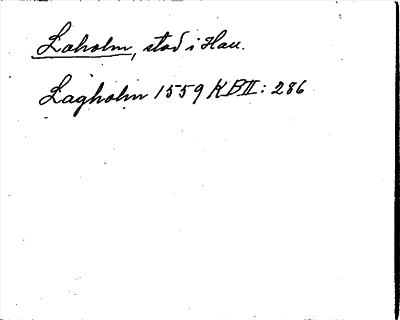 Laholm, stad i Hall.
Lagholm 1559 KBII: 286